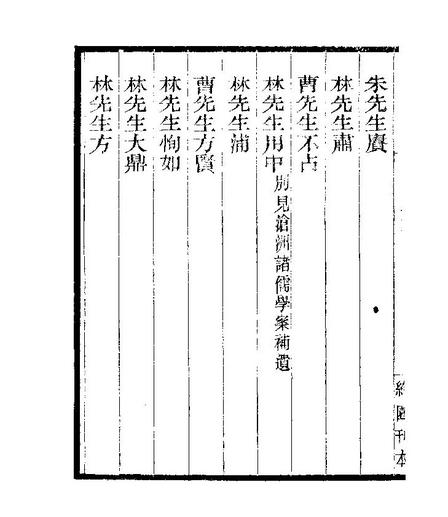 朱先生賡
林先生肅
曹先生不占
林先生用中別見滄洲諸儒學案補遺
林先生浦
曹先生方賢
林先生恂如
林先生大鼎
林先生方
約園刊本